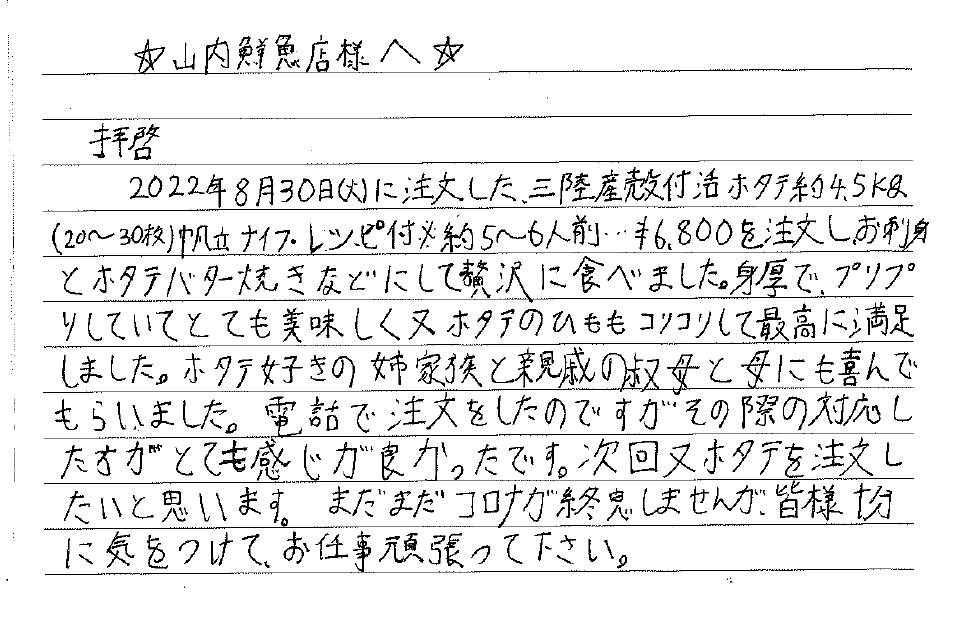 ☆山内鮮魚店様へ☆
拝啓
2022年8月30日(火)に注文した、三陸産殻付活ホタテ約4.5kg
(20〜30枚)帆立ナイフ・レシピ付〆約5〜6人前…¥6,800を注文し、お刺身
とホタテバター焼きなどにして贅沢に食べました。身厚で、プリプ
リしていてとても美味しく又ホタテのひももコリコリして最高に満足
しました。ホタテ好きの姉家族と親戚の叔母と母にも喜んで
もらいました。電話で注文をしたのですがその際の対応し
た方がとても感じが良かったです。次回又ホタテを注文し
たいと思います。まだまだコロナが終息しませんが、皆様十分
に気をつけて、お仕事頑張って下さい。